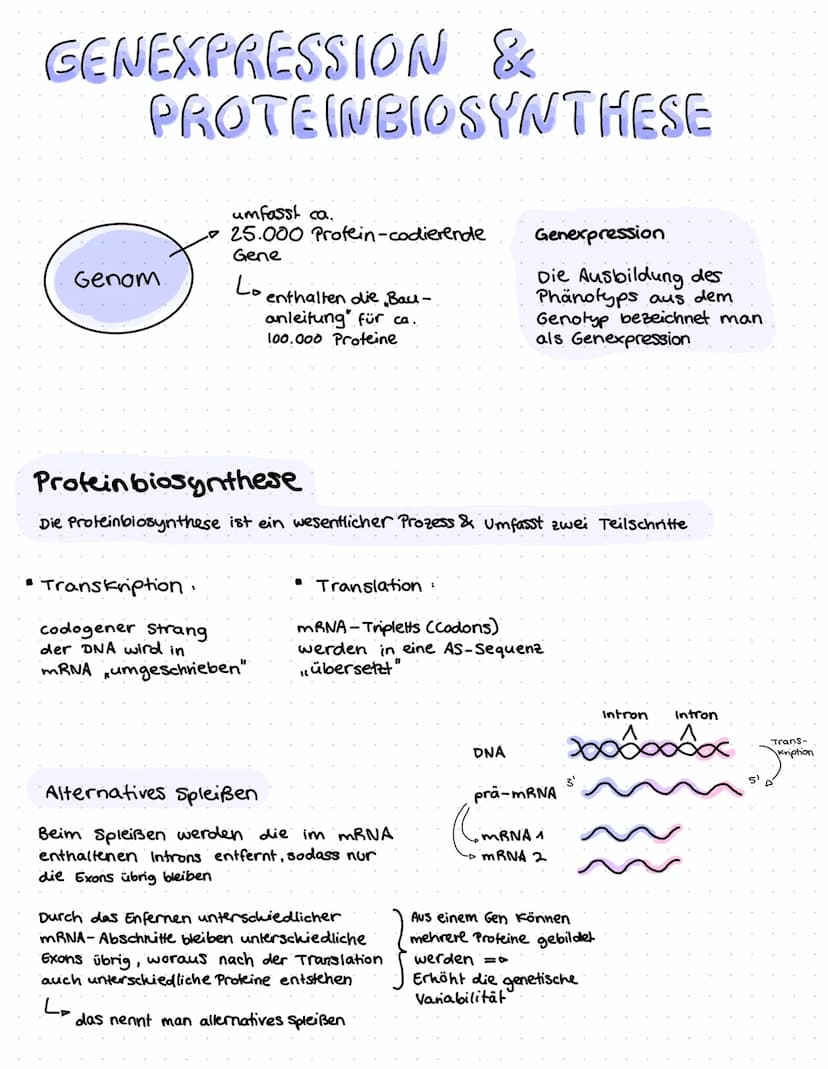 GENEXPRESSION &
PROTEINBIOSYNTHESE
Genom
umfasst ca.
25.000 Protein-codierende
Gene
enthalten die „Bau-
anleitung" für ca.
100.000 Proteine
Genexpression
Die Ausbildung des
Phänotyps aus dem
Genotyp bezeichnet man
als Genexpression
Proteinbiosynthese
Die Proteinbiosynthese ist ein wesentlicher Prozess & Umfasst zwei Teilschritte
▪ Transkription:
codogener Strang
der DNA wird in
mRNA „umgeschrieben"
▪ Translation:
mRNA-Tripletts (Codons)
werden in eine AS-Sequenz
„übersetzt"
Intron Intron
DNA
Trans-
kription
prä-mRNA 3' 5'
mRNA 1
mRNA 2
Alternatives Spleißen
Beim Spleißen werden die im mRNA
enthaltenen Introns entfernt, sodass nur
die Exons übrig bleiben
Durch das Enfernen unterschiedlicher
mRNA-Abschnitte bleiben unterschiedliche
Exons übrig, woraus nach der Translation
auch unterschiedliche Proteine entstehen
das nennt man alternatives Spleißen
Aus einem Gen können
mehrere Proteine gebildet
werden =>
Erhöht die genetische
Variabilität